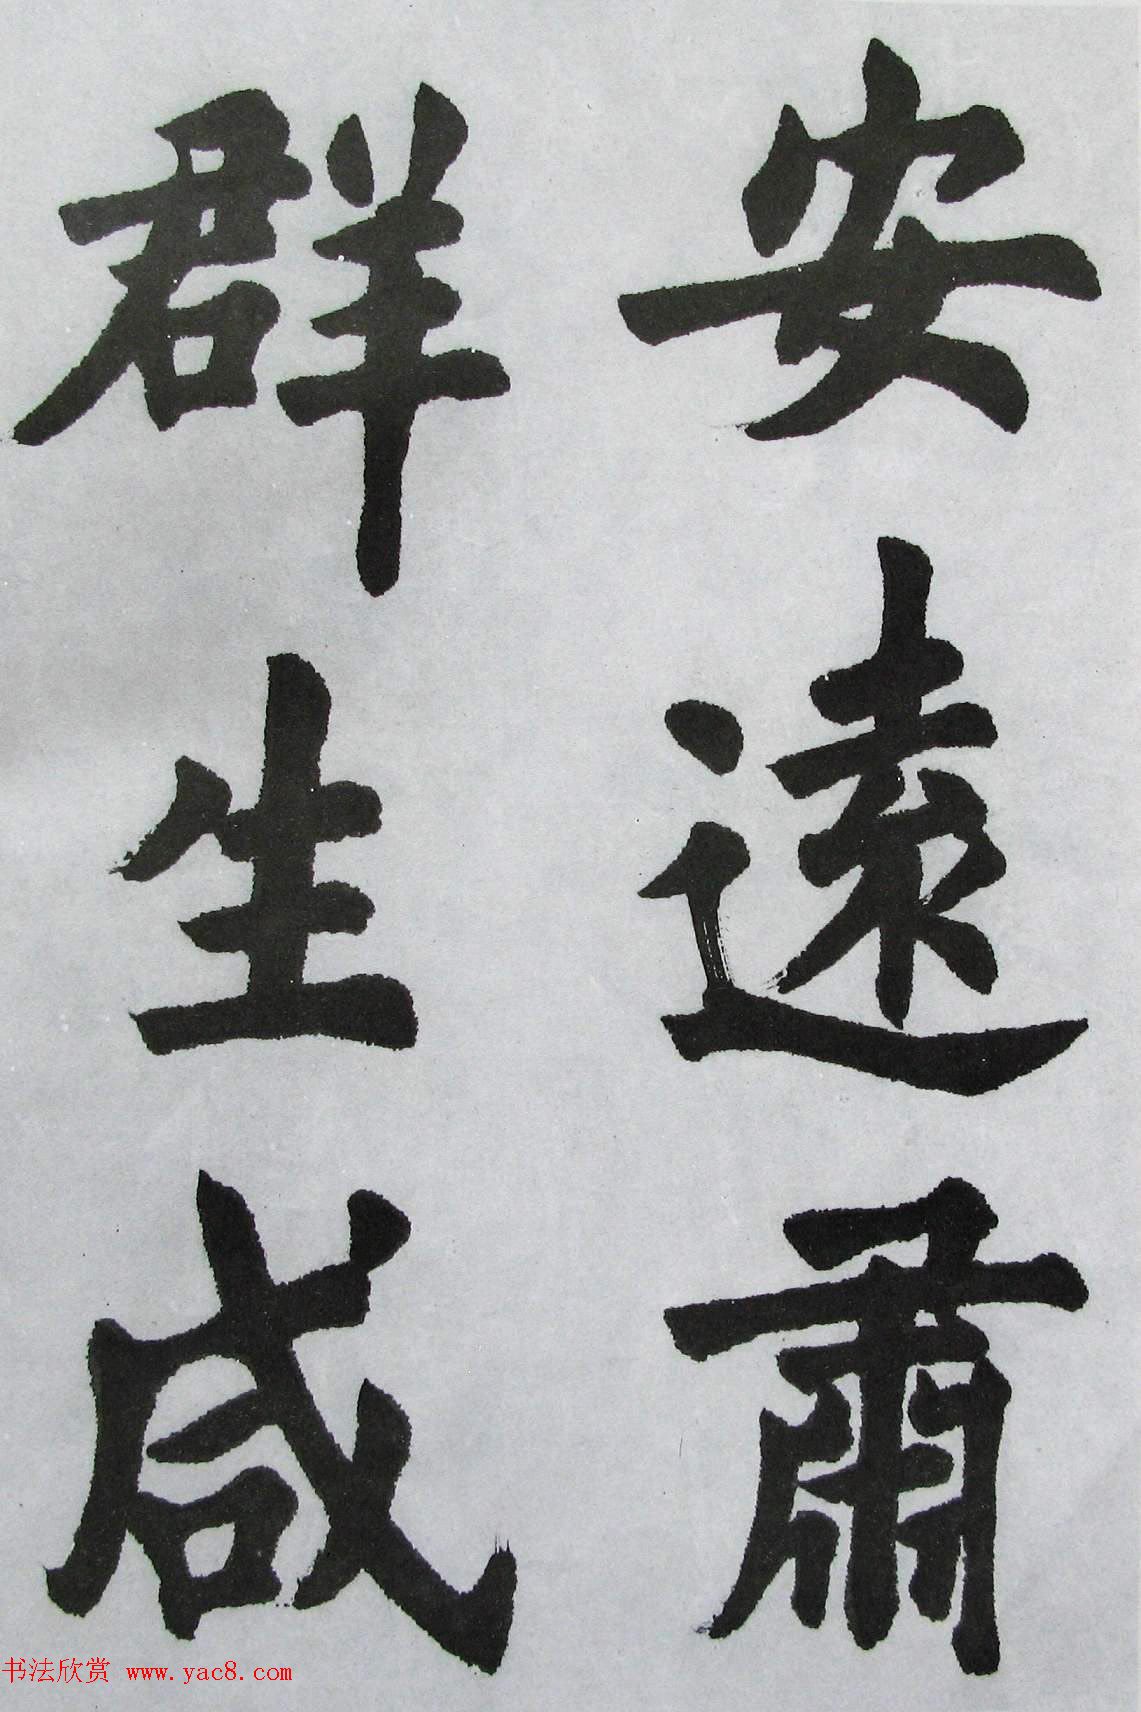 安遠肅
群生咸
书法欣赏 www.yac8.com